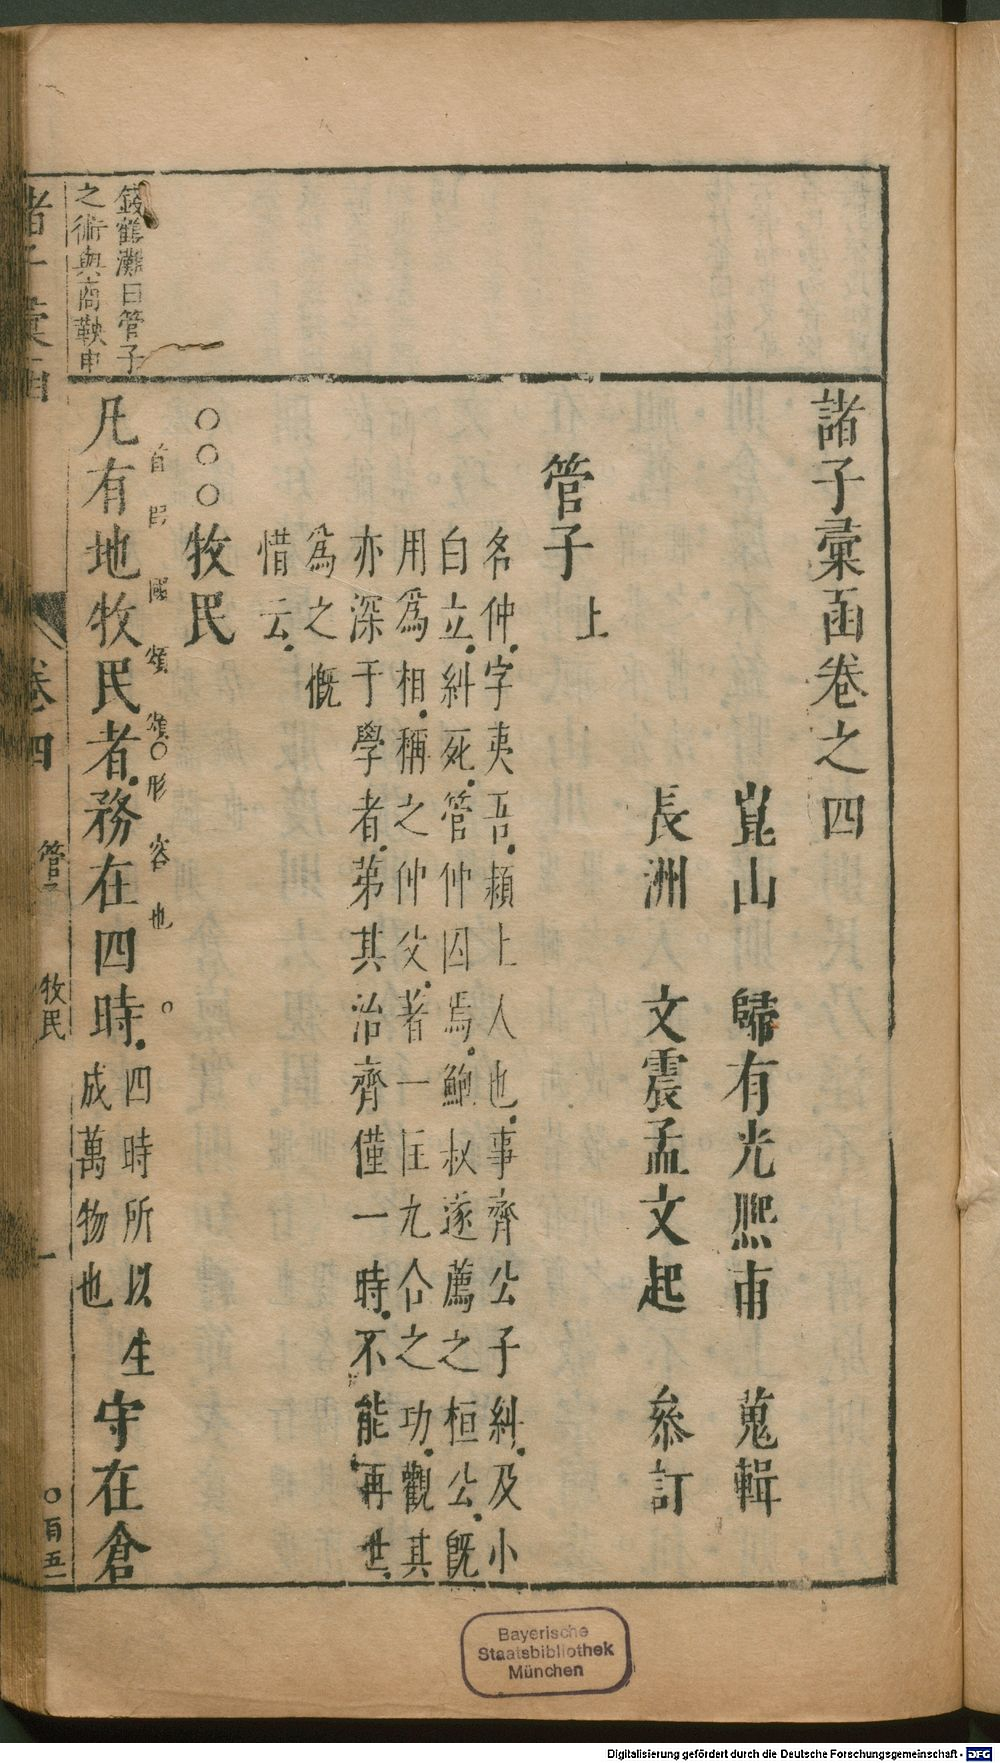 諸子彙函卷之四
崑山 歸有光熙甫 蒐輯
長洲 文震孟文起 參訂
管子 上
名仲字夷吾潁上人也事齊公子糾及小
白立糾死管仲囚焉鮑叔遂薦之桓公既
用爲相稱之仲父著一匡九合之功觀其
亦深于學者第其治齊僅一時不能再世
爲之慨
惜云
○○○牧民
首民國頌頌○形容也
凡有地牧民者務在四時四時所以生成萬物也守在倉
錢鶴灘曰管子
之術與商鞅申
諸子彙函
卷四
管子
牧民
一
○百五一
Bayerische
Staatsbibliothek
München
Digitalisierung gefördert durch die Deutsche Forschungsgemeinschaft - DFG